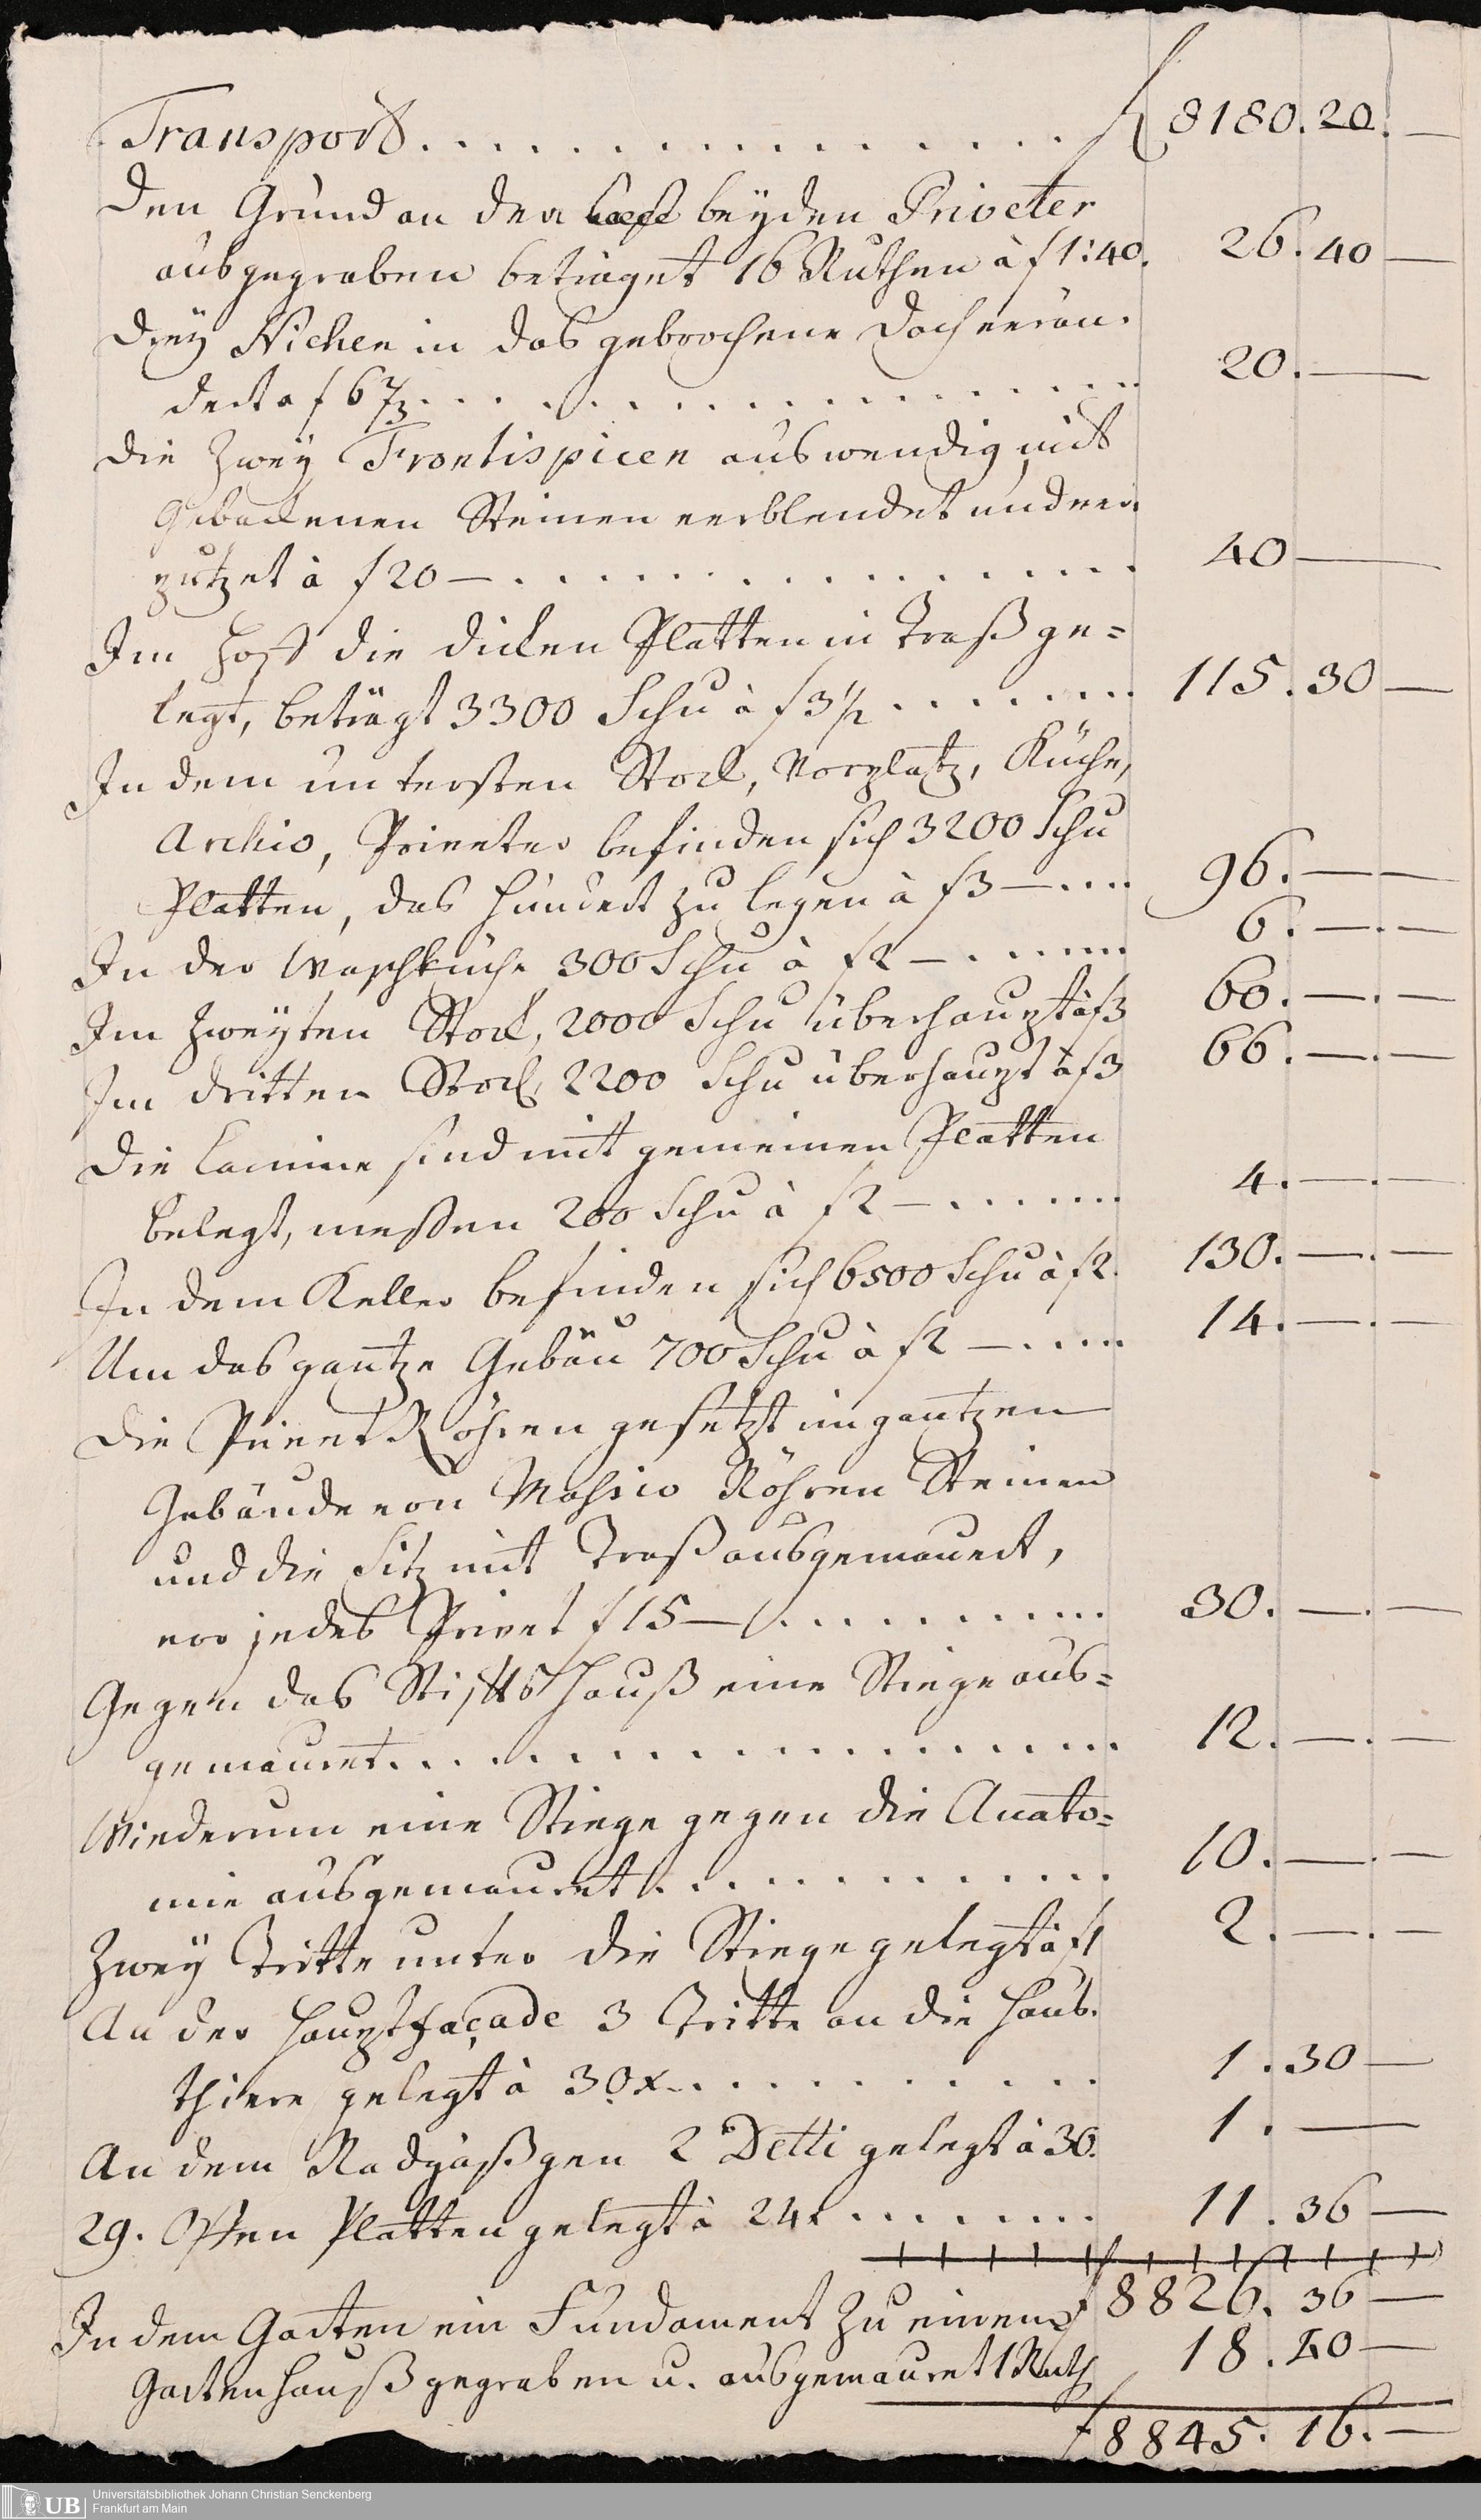 Transport . . . . . . . . . . . . . . . f 8180. 20. —
Den Grund an den beyden Priveter
ausgegraben betraget 16 Ruthen à f 1:40. 26. 40 —
Drey Nichen in das gebrochene Dach verän-
dert a f 6 2/3 . . . . . . . . . . . . . 20. —
Die Zwey Frontispicen auswendig mit
Gebackenen Steinen verblendet und ver-
putzet à f 20 — . . . . . . . . . . . . 40 —
Im Hoff die dicken Platten in Traß ge=
legt, beträgt 3300 Schu à f 3 1/2 . . . . . . 115. 30 —
In dem untersten Stock, Vorplatz, Küche,
Archiv, Priveter befinden sich 3200 Schu
Platten, das Hundert zu legen à f 3 — . . . . 96. — —
In der Waschküche 300 Schu à f 2 — . . . . . 6. — . —
Im Zweyten Stock, 2000 Schu überhaupt à f 3 60. — . —
Im dritten Stock, 2200 Schu überhaupt à f 3 66. — . —
Die Camine sind mit gemeinen Platten
belegt, meßen 200 Schu à f 2 — . . . . . . 4. — . —
In dem Keller befinden sich 6500 Schu à f 2. 130. — . —
Um das gantze Gebäu 700 Schu à f 2 — . . . . 14. — . —
Die Privet Röhren gesetzt im gantzen
Gebäude von Massiv Röhren Steinen
und die Sitz mit Traß ausgemauert,
vor jedes Privet f 15 — . . . . . . . . . 30. — . —
Gegen das Stiffts Hauß eine Stiege aus=
gemauret . . . . . . . . . . . . . . . . 12. — . —
Wiederum eine Stiege gegen die Anato=
mie ausgemauret . . . . . . . . . . . . 10. — . —
Zwey Tritte unter die Stiege gelegt à f 1 2. — . —
An der Hauptfaçade 3 Tritte an die Haus-
thüre gelegt à 30 x . . . . . . . . . . 1. 30 —
An dem Radgäßgen 2 Detti gelegt à 30. 1. —
29. Offen Platten gelegt à 24 x . . . . . . . 11. 36 —
f 8826. 36 —
In dem Garten ein Fundament zu einem
Gartenhauß gegraben u. ausgemauret 1 Ruth 18. 40 —
f 8845. 16. —
Universitätsbibliothek Johann Christian Senckenberg
Frankfurt am Main
UB